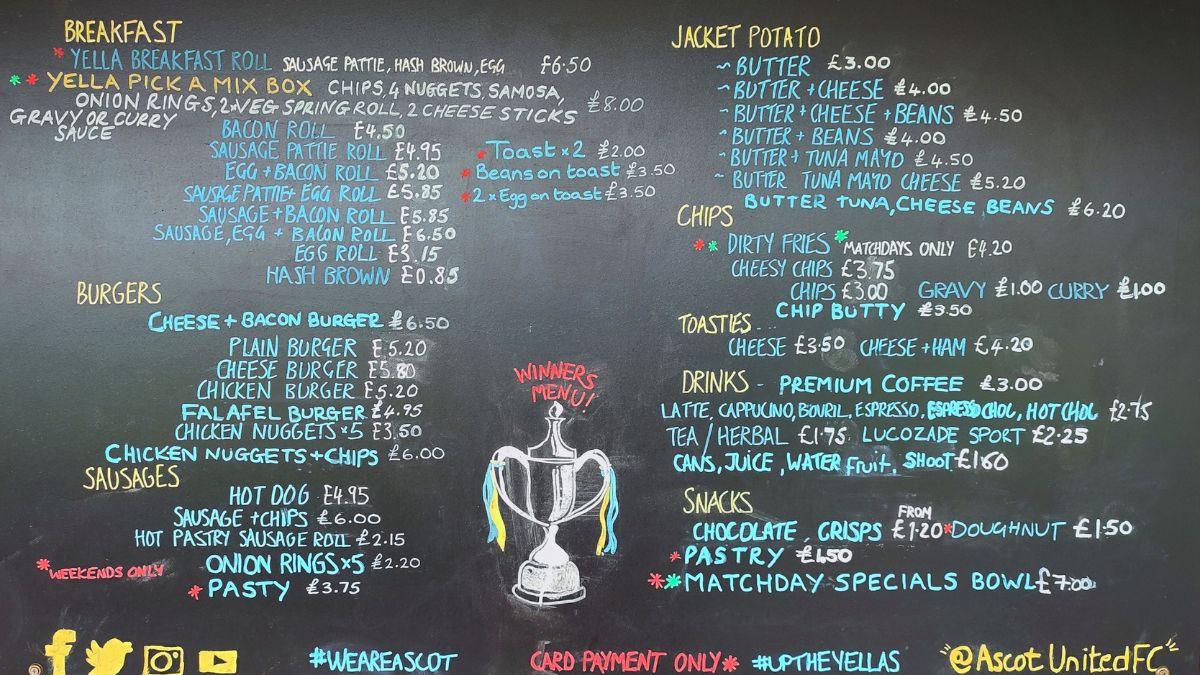 BREAKFAST
* YELLA BREAKFAST ROLL SAUSAGE PATTIE, HASH BROWN, EGG £6.50
** YELLA PICK A MIX BOX CHIPS, 4 NUGGETS, SAMOSA,
ONION RINGS, 2xVEG SPRING ROLL, 2 CHEESE STICKS £8.00
GRAVY OR CURRY
SAUCE
BACON ROLL £4.50
SAUSAGE PATTIE ROLL £4.95
EGG + BACON ROLL £5.20
SAUSAGE PATTIE + EGG ROLL £5.85
SAUSAGE + BACON ROLL £5.85
SAUSAGE, EGG + BACON ROLL £6.50
EGG ROLL £3.15
HASH BROWN £0.85
* Toast x2 £2.00
* Beans on toast £3.50
* 2 x Egg on toast £3.50
BURGERS
CHEESE + BACON BURGER £6.50
PLAIN BURGER £5.20
CHEESE BURGER £5.80
CHICKEN BURGER £5.20
FALAFEL BURGER £4.95
CHICKEN NUGGETS x5 £3.50
CHICKEN NUGGETS + CHIPS £6.00
SAUSAGES
HOT DOG £4.95
SAUSAGE + CHIPS £6.00
HOT PASTRY SAUSAGE ROLL £2.15
ONION RINGS x5 £2.20
* WEEKENDS ONLY
* PASTY £3.75
WINNERS
MENU!
JACKET POTATO
~ BUTTER £3.00
~ BUTTER + CHEESE £4.00
~ BUTTER + CHEESE + BEANS £4.50
~ BUTTER + BEANS £4.00
~ BUTTER + TUNA MAYO £4.50
~ BUTTER TUNA MAYO CHEESE £5.20
BUTTER TUNA, CHEESE BEANS £6.20
CHIPS
** DIRTY FRIES * MATCHDAYS ONLY £4.20
CHEESY CHIPS £3.75
CHIPS £3.00 GRAVY £1.00 CURRY £1.00
CHIP BUTTY £3.50
TOASTIES...
CHEESE £3.50 CHEESE + HAM £4.20
DRINKS - PREMIUM COFFEE £3.00
LATTE, CAPPUCINO, BOVRIL, ESPRESSO, CHOC, HOT CHOC £2.75
TEA / HERBAL £1.75 LUCOZADE SPORT £2.25
CANS, JUICE, WATER Fruit, SHOOT £1.60
SNACKS
FROM
CHOCOLATE, CRISPS £1.20 * DOUGHNUT £1.50
* PASTRY £1.50
** MATCHDAY SPECIALS BOWL £7.00
#WEAREASCOT
CARD PAYMENT ONLY *
#UPTHEYELLAS
"@Ascot UnitedFC"